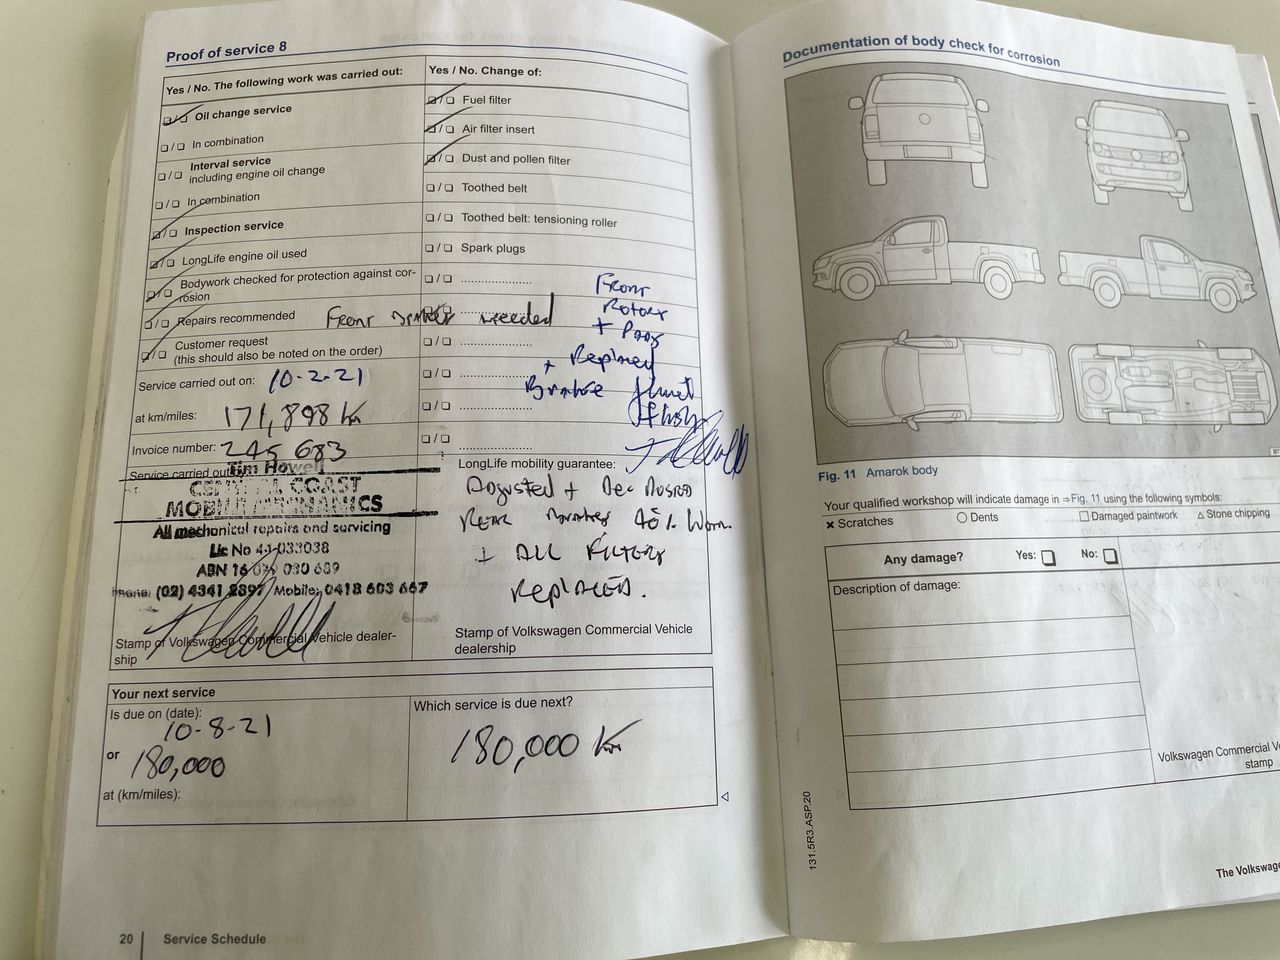 Proof of service 8
Yes / No. The following work was carried out:
❏/❏ Oil change service
❏/❏ In combination
❏/❏ Interval service
including engine oil change
❏/❏ In combination
❏/❏ Inspection service
❏/❏ LongLife engine oil used
❏/❏ Bodywork checked for protection against cor-
rosion
❏/❏ Repairs recommended
Front needed
❏/❏ Customer request
(this should also be noted on the order)
Service carried out on: 10-2-21
at km/miles: 171,898 Km
Invoice number: 245 683
Service carried out
Tim Howell
CENTRAL COAST
MOBILE MECHANICS
All mechanical repairs and servicing
Lic No
ABN 16
Phone: (02) 4341 2897 Mobile: 0418 603 667
Stamp of Volkswagen Commercial Vehicle dealer-
ship
Yes / No. Change of:
❏/❏ Fuel filter
❏/❏ Air filter insert
❏/❏ Dust and pollen filter
❏/❏ Toothed belt
❏/❏ Toothed belt: tensioning roller
❏/❏ Spark plugs
❏/❏ ....................
❏/❏ ....................
❏/❏ ....................
❏/❏ ....................
❏/❏ ....................
❏/❏ ....................
Front
Rotors
+ Pads
+ Replaced
Brake fluid
flush
LongLife mobility guarantee:
Adjusted + De-Dusted
Rear 40% Worn
+ ALL Filters
Replaced.
Stamp of Volkswagen Commercial Vehicle
dealership
Your next service
Is due on (date):
10-8-21
or 180,000
at (km/miles):
Which service is due next?
180,000 Km
20 Service Schedule
Documentation of body check for corrosion
Fig. 11 Amarok body
Your qualified workshop will indicate damage in ⇒Fig. 11 using the following symbols:
✖ Scratches ○ Dents □ Damaged paintwork △ Stone chipping
Any damage? Yes: ❏ No: ❏
Description of damage:
Volkswagen Commercial
stamp
131.5R3.ASP.20
The